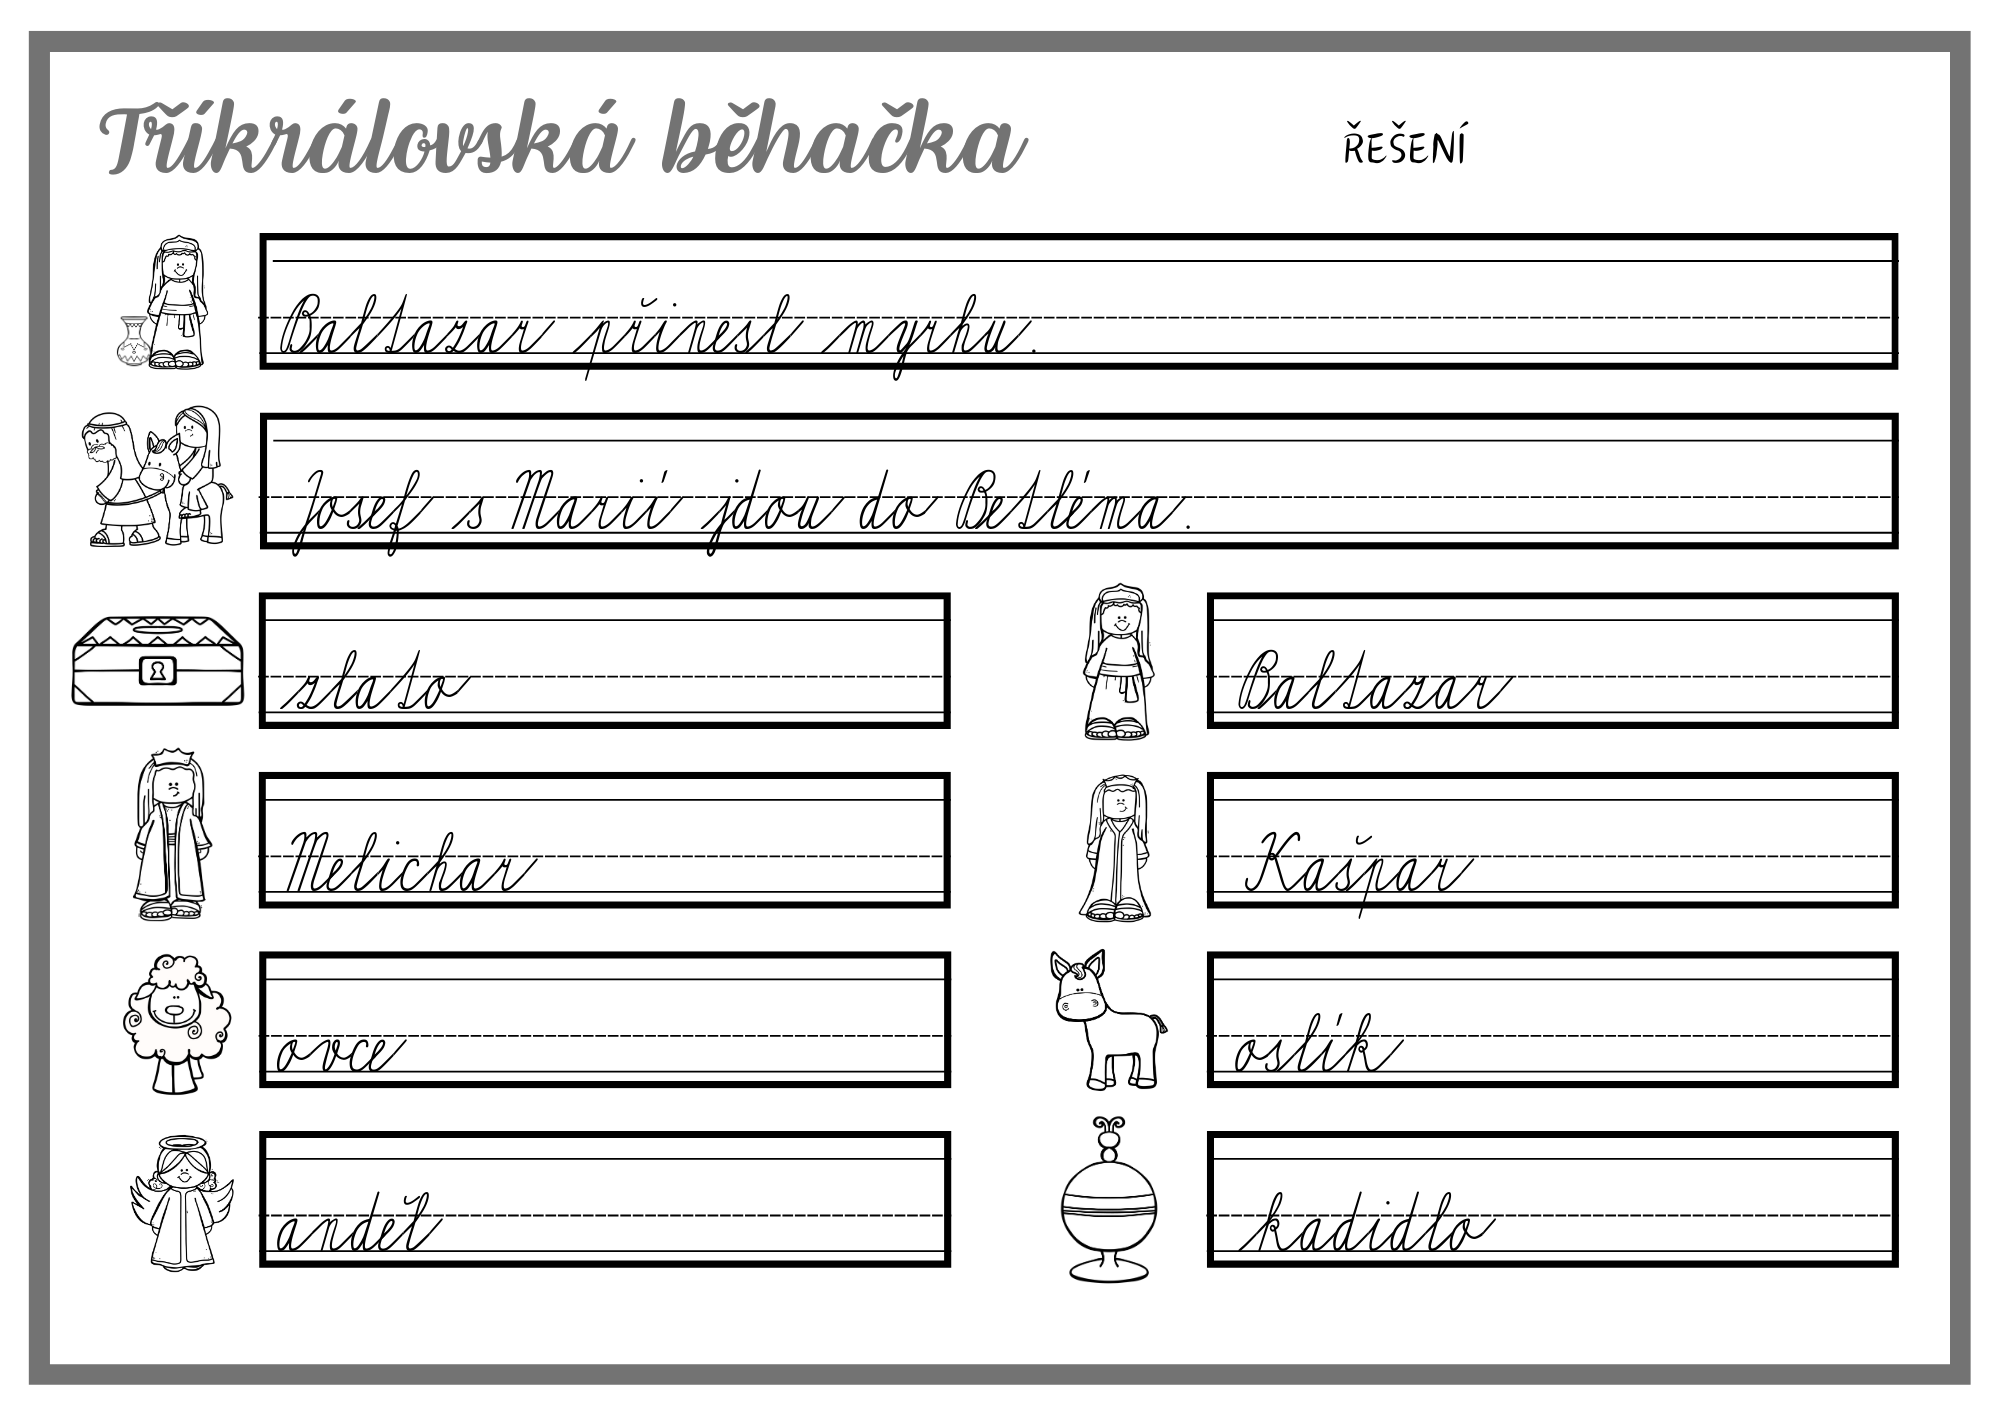 Tříkrálovská běhačka ŘEŠENÍ
Baltazar přinesl myrhu.
Josef s Marií jdou do Betléma.
zlato Baltazar
Melichar Kašpar
ovce oslík
anděl kadidlo